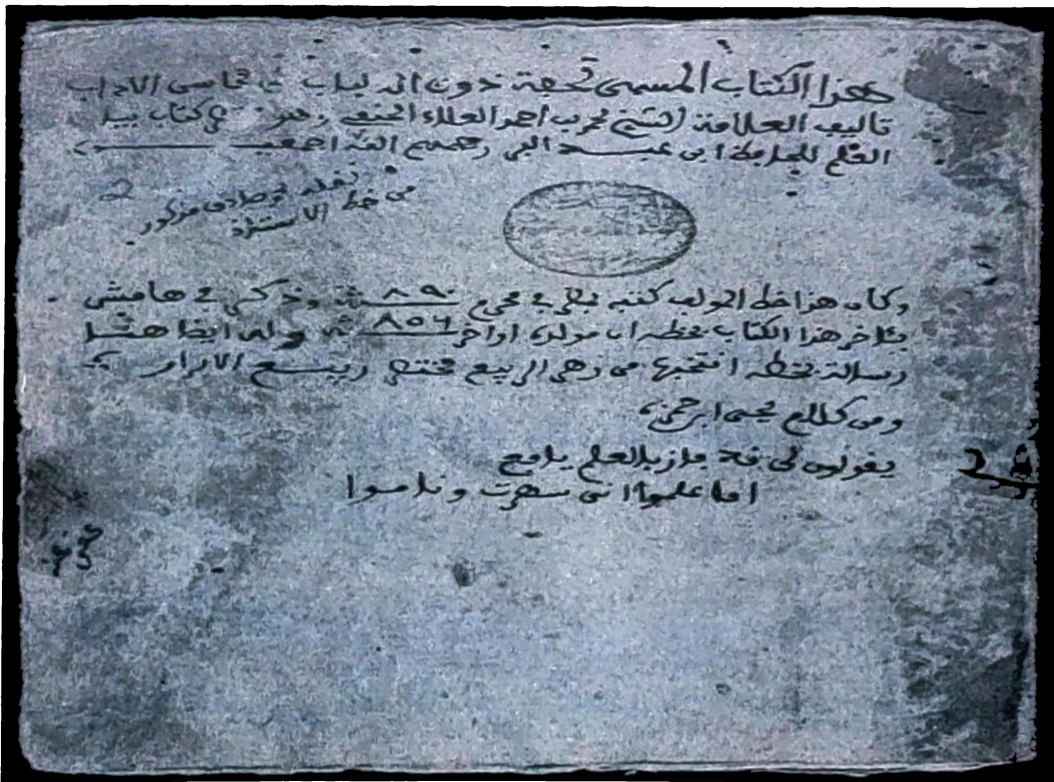 هذا الكتاب المسمى تحفة ذوى الالباب فى محاسن الاداب
تاليف العلامة الشيخ محمد بن احمد العلاء الحنفى وهو كتاب بيان
العلم للحافظ ابى عبد البر رحمهم الله اجمعين
نقله مذكور
من خط الاستاذ
2
وكان هذا خط المولف كتبه فى محرم ٨٩٠ سنة وذكر فى هامش
باخر هذا الكتاب بخطه ان مولده اواخر ٨٥٦ سنة وله ايضا هنا
رسالة بخطه انتخبها من زهر الربيع مختصر ربيع الابرار
ومن كلام
يقولون لى قد بالعلم يافع
اما علموا انى سهرت وناموا